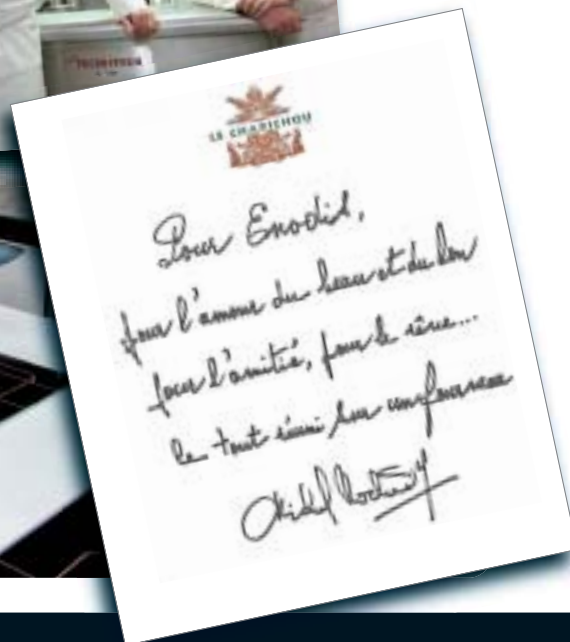 LE CHABICHOU
Pour Enodis,
pour l'amour du beau et du bon
pour l'amitié, pour le rêve...
le tout réuni sur un fourneau
Michel Rochedy